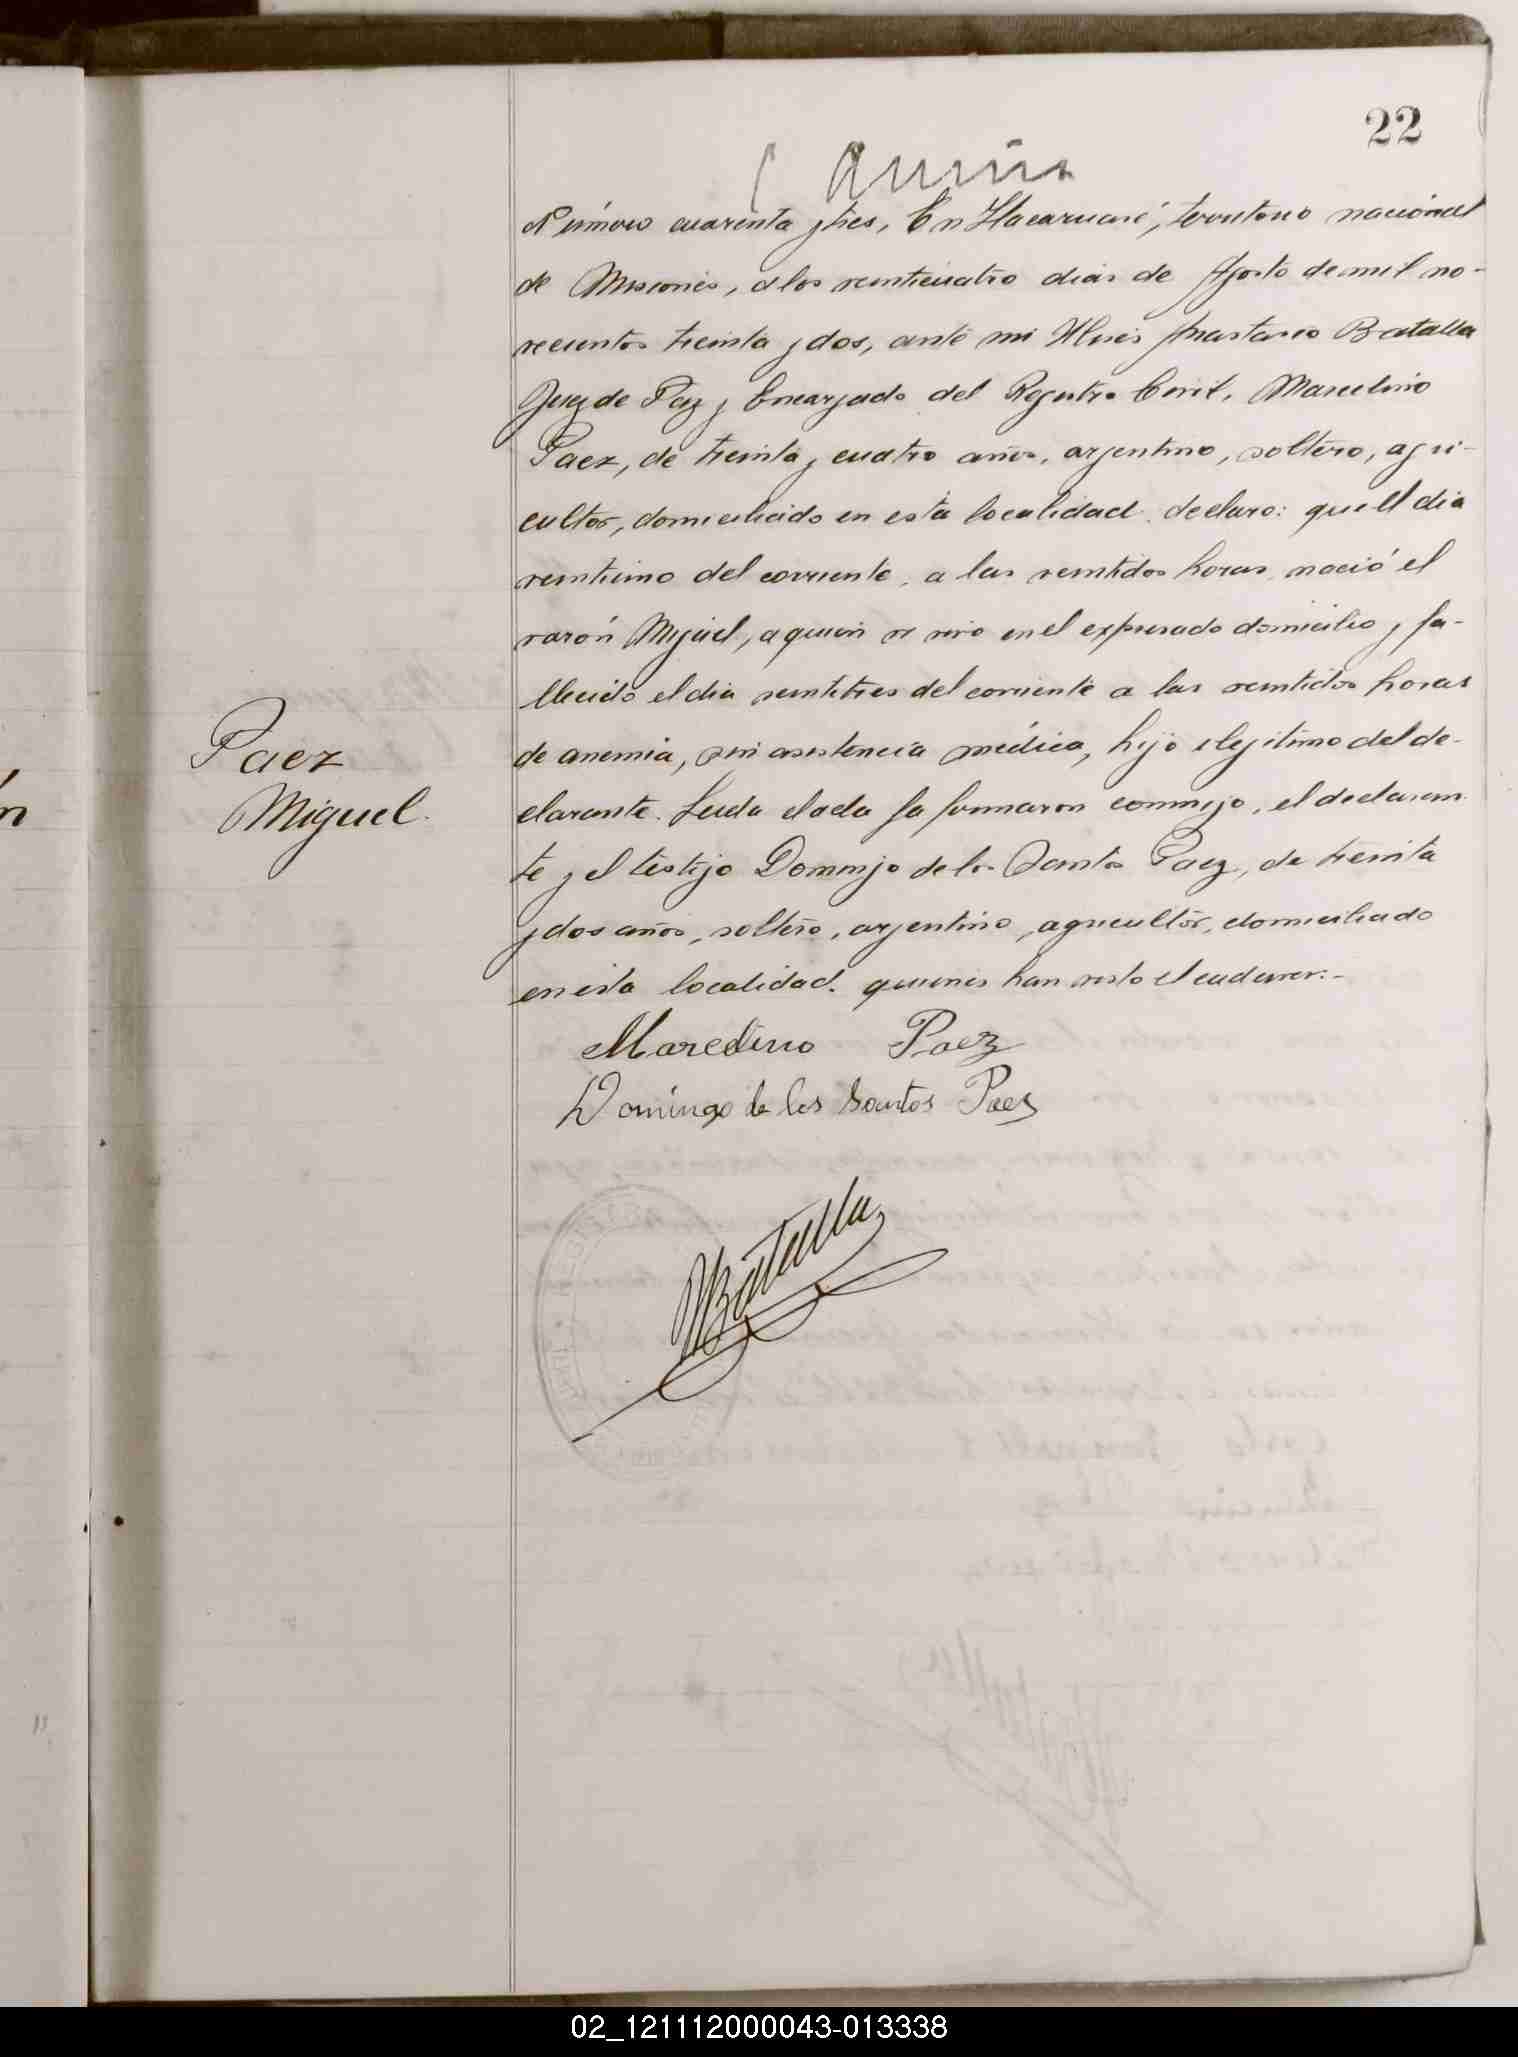 22
Anemia
Paez
Miguel.
Número cuarenta y tres, En Itacaruaré, territorio nacional
de Misiones, a los veinticuatro dias de Agosto de mil no-
vecientos treinta y dos, ante mi Anastacio Batalla
Juez de Paz y Encargado del Registro Civil, Marcelino
Paez, de treinta y cuatro años, argentino, soltero, agri-
cultor, domiciliado en esta localidad declaro: que el dia
veintiuno del corriente, a las veintidos horas, nació el
varón Miguel, a quien se vivo en el expresado domicilio y fa-
llecido el dia veintitres del corriente a las veintidos horas
de anemia, sin asistencia médica, hijo ilejitimo del de-
clarante. Leida el acta la firmaron conmigo, el declaran
te y el testigo Domingo de los Santos Paez, de treinta
y dos años, soltero, argentino, agricultor, domiciliado
en esta localidad. quienes han visto el cadaver.-
Marcelino Paez
Domingo de los Santos Paez
Batalla
02_121112000043-013338